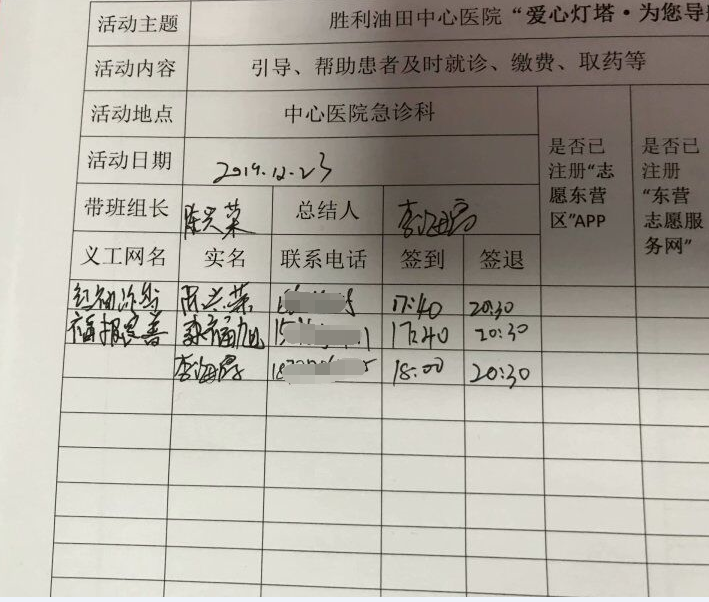 活动主题 胜利油田中心医院“爱心灯塔·为您导
活动内容 引导、帮助患者及时就诊、缴费、取药等
活动地点 中心医院急诊科
活动日期 2019.12.23
是否已注册“志愿东营区”APP
是否已注册“东营志愿服务网”
带班组长 陈兴荣 总结人 李海霞
义工网名 实名 联系电话 签到 签退
陈兴荣 17:40 20:30
17:40 20:30
李海霞 18:00 20:30